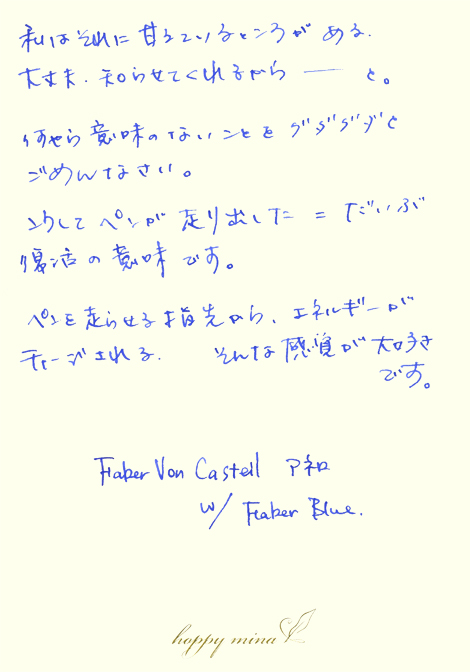 私はそれに甘えているところがある.
大丈夫.知らせてくれるから ── と。
何やら意味のないことをグダグダと
ごめんなさい。
こうしてペンが走り出した = だいぶ
復活の意味です。
ペンを走らせる指先から、エネルギーが
チャージされる. そんな感覚が大好き
です。
Faber Von Castell アネロ
w/ Faber Blue.
happy mina